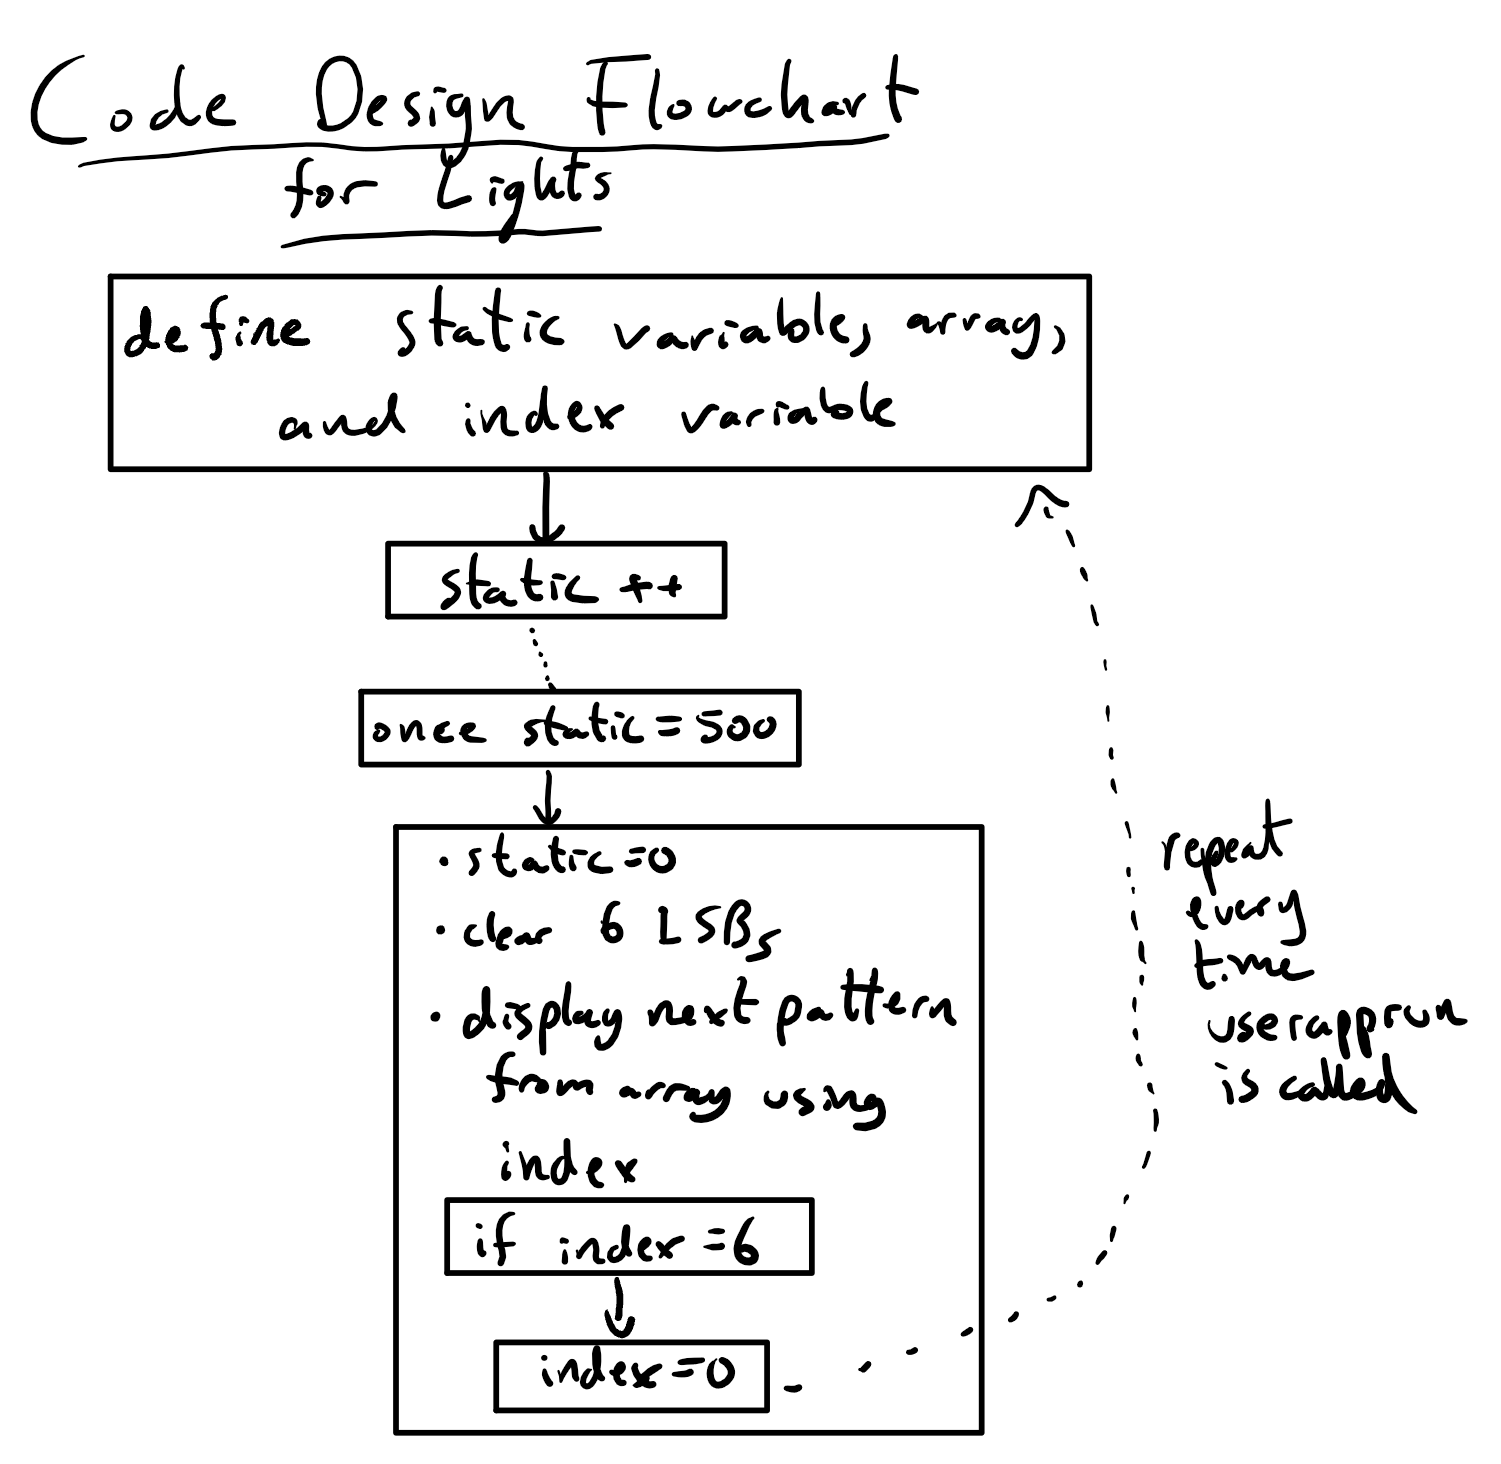 Code Design Flowchart
for Lights
define static variable, array,
and index variable
static ++
once static = 500
• static = 0
• clear 6 LSBs
• display next pattern
from array using
index
if index = 6
index = 0
repeat
every
time
userapprun
is called